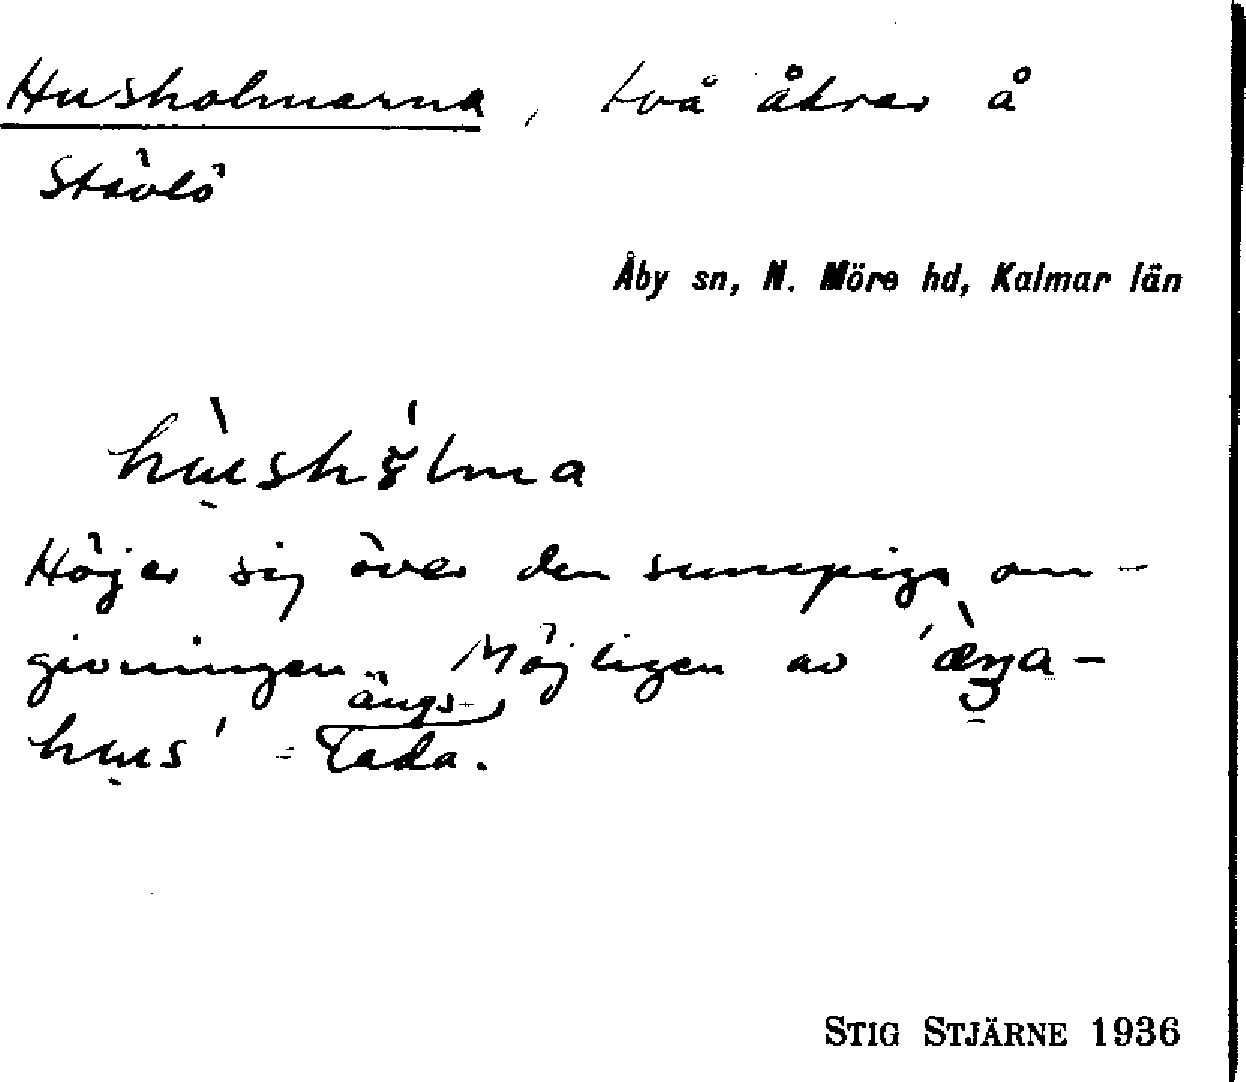 Husholmarna, två åkrar å
Stävlö
Åby sn, N. Möre hd, Kalmar län
Höjer sig över den sumpiga om-
givningen. Möjligen av 'æŋa-
hus' = ängs-
lada.
STIG STJÄRNE 1936